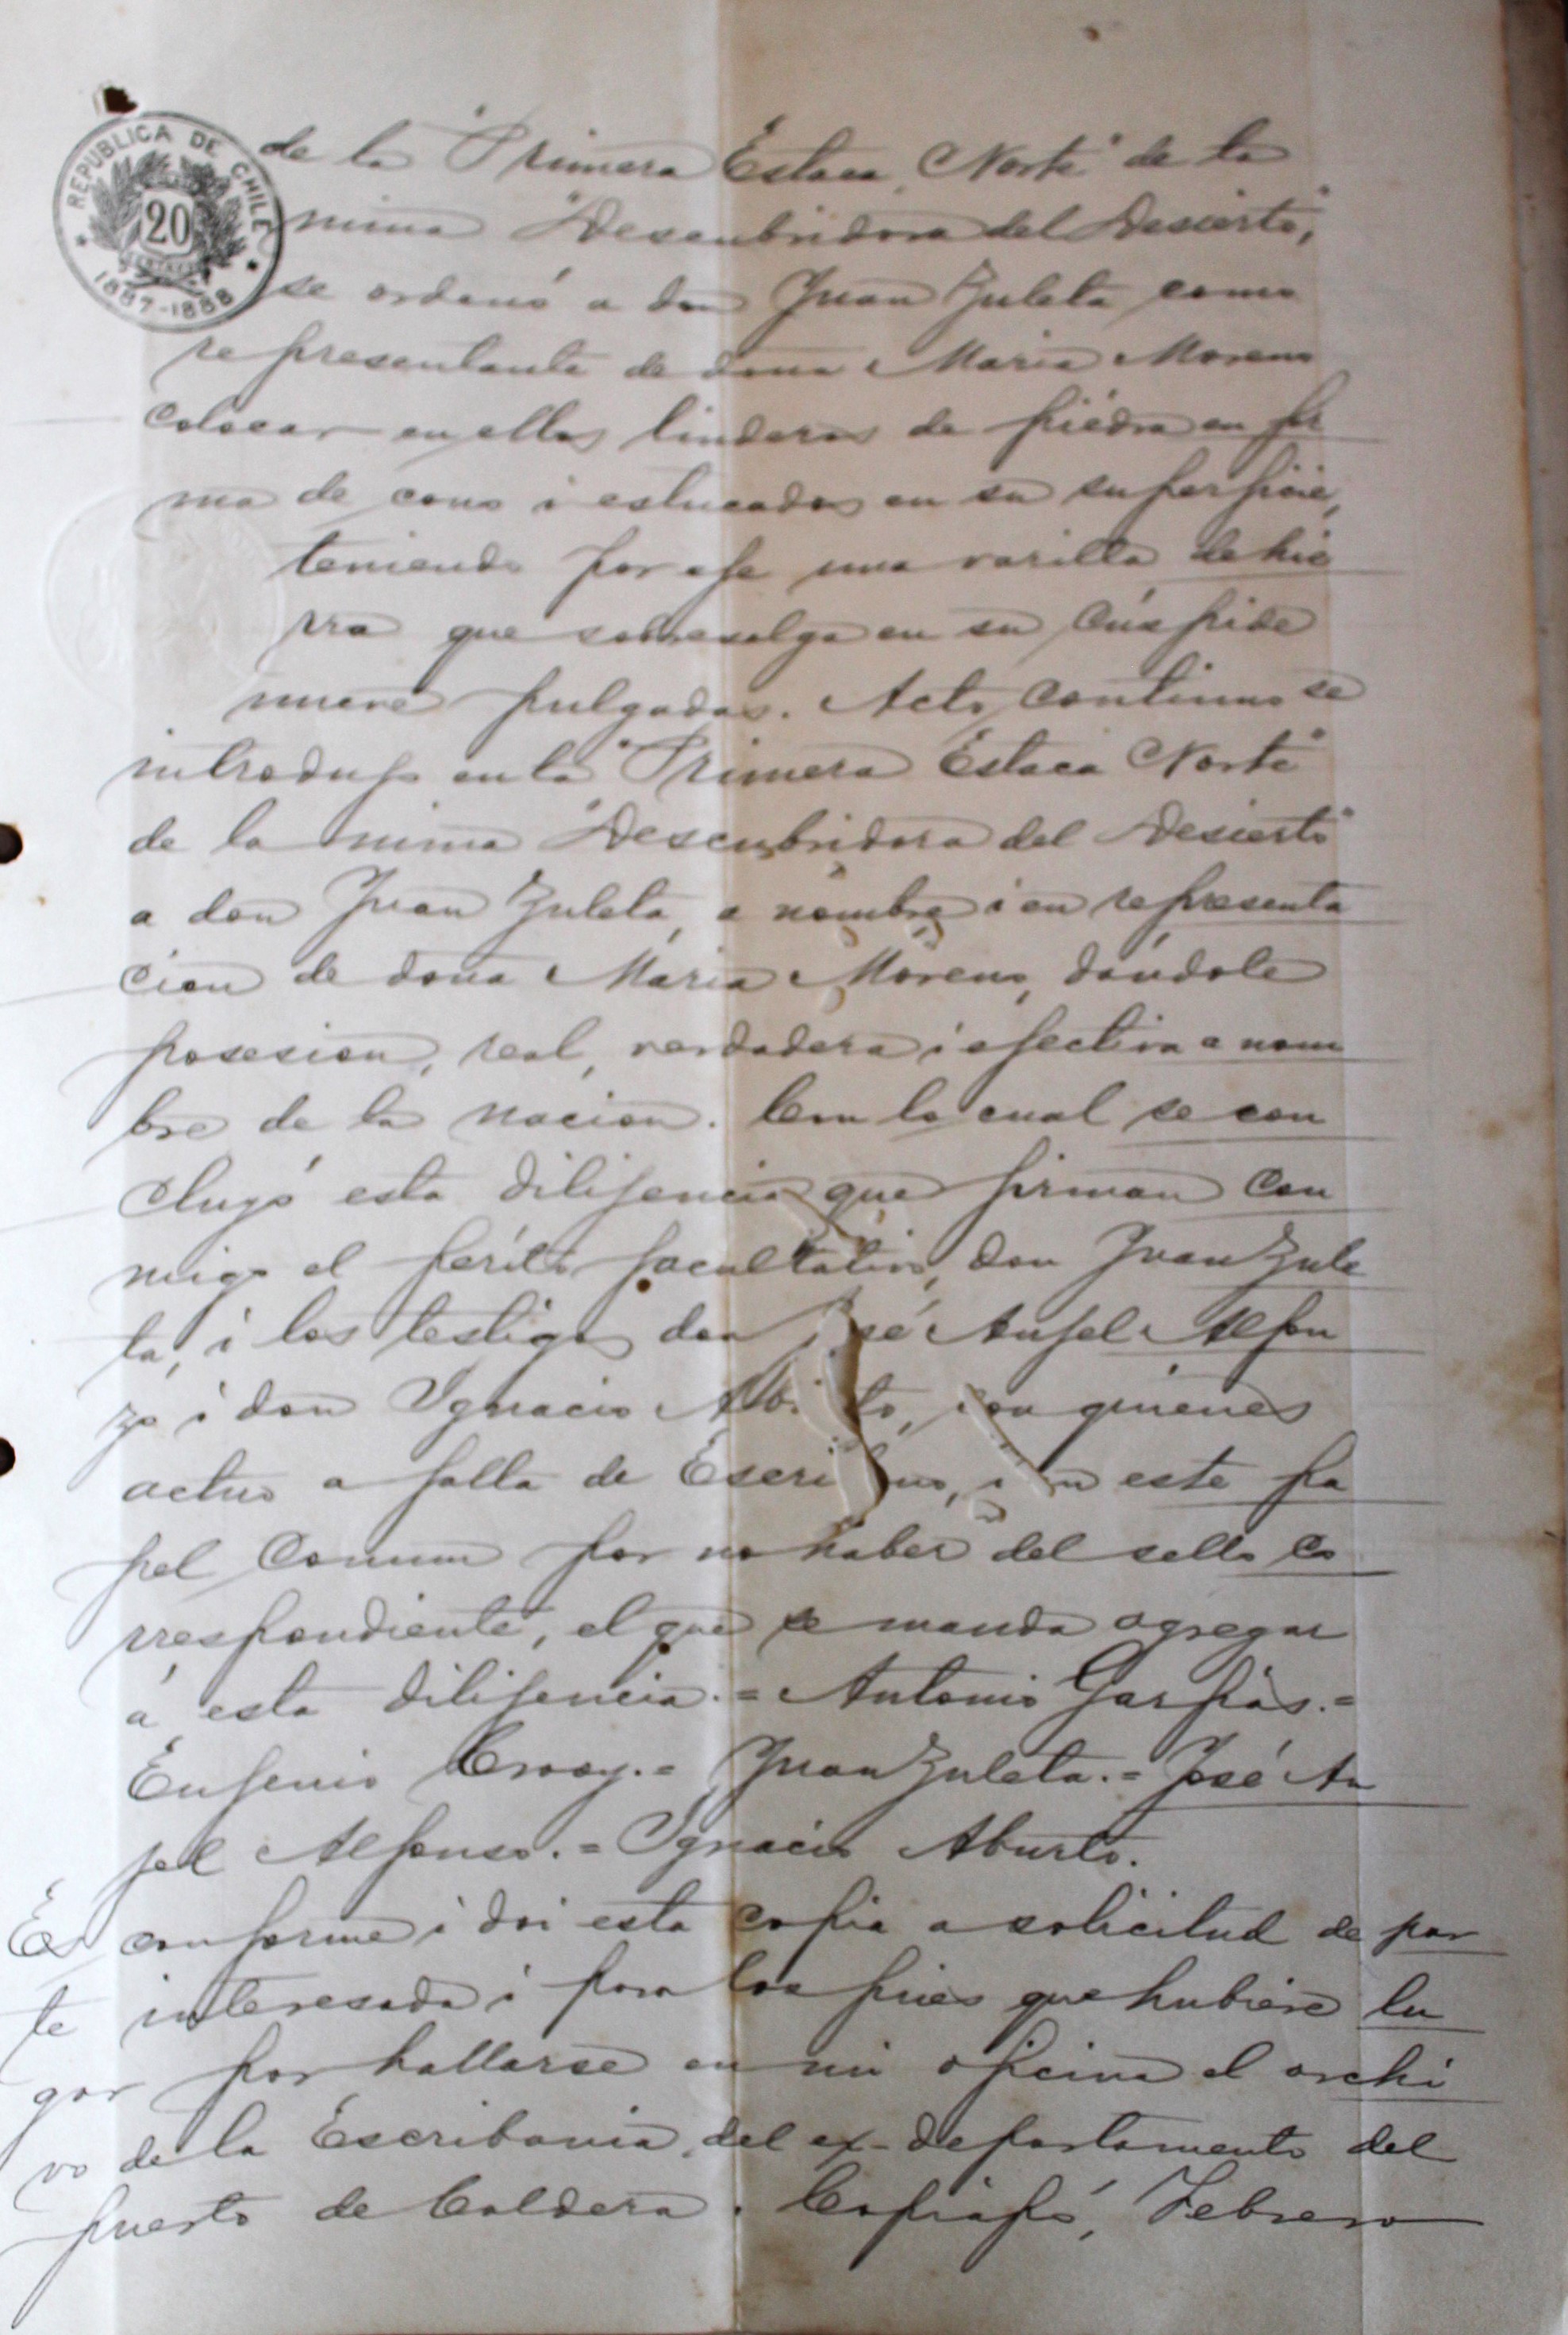 REPUBLICA DE CHILE
20
CENTAVOS
1887-1888
de la "Primera Estaca Norte" de la
mina "Descubridora del Desierto",
se ordenó a don Juan Zuleta como
representante de doña Maria Moreno
colocar en ellos linderos de piedra en for
ma de cono i estucados en su superficie,
teniendo por eje una varilla de hie
rro que sobresalga en su cúspide
nueve pulgadas. Acto continuo se
introdujo en la "Primera Estaca Norte"
de la mina "Descubridora del Desierto"
a don Juan Zuleta, a nombre i en representa
cion de doña Maria Moreno, dándole
posesion, real, verdadera i efectiva a nom
bre de la nacion. Con lo cual se con
cluyó esta dilijencia que firman con
migo el perito facultativo, don Juan Zule
ta, i los testigos don José Anjel Alfon
zo i don Ignacio Aburto, con quienes
actuo a falta de Escribano, i en este pa
pel comun por no haber del sello co
rrespondiente, el que se manda agregar
á esta dilijencia.= Antonio Garfias.=
Eujenio Croxy.= Juan Zuleta.= José An
jel Alfonso.= Ignacio Aburto.
Es conforme i doi esta copia a solicitud de par
te interesada i para los fines que hubiere lu
gar por hallarse en mi oficina el archi
vo de la Escribania del ex-departamento del
puerto de Caldera. Copiapó, Febrero